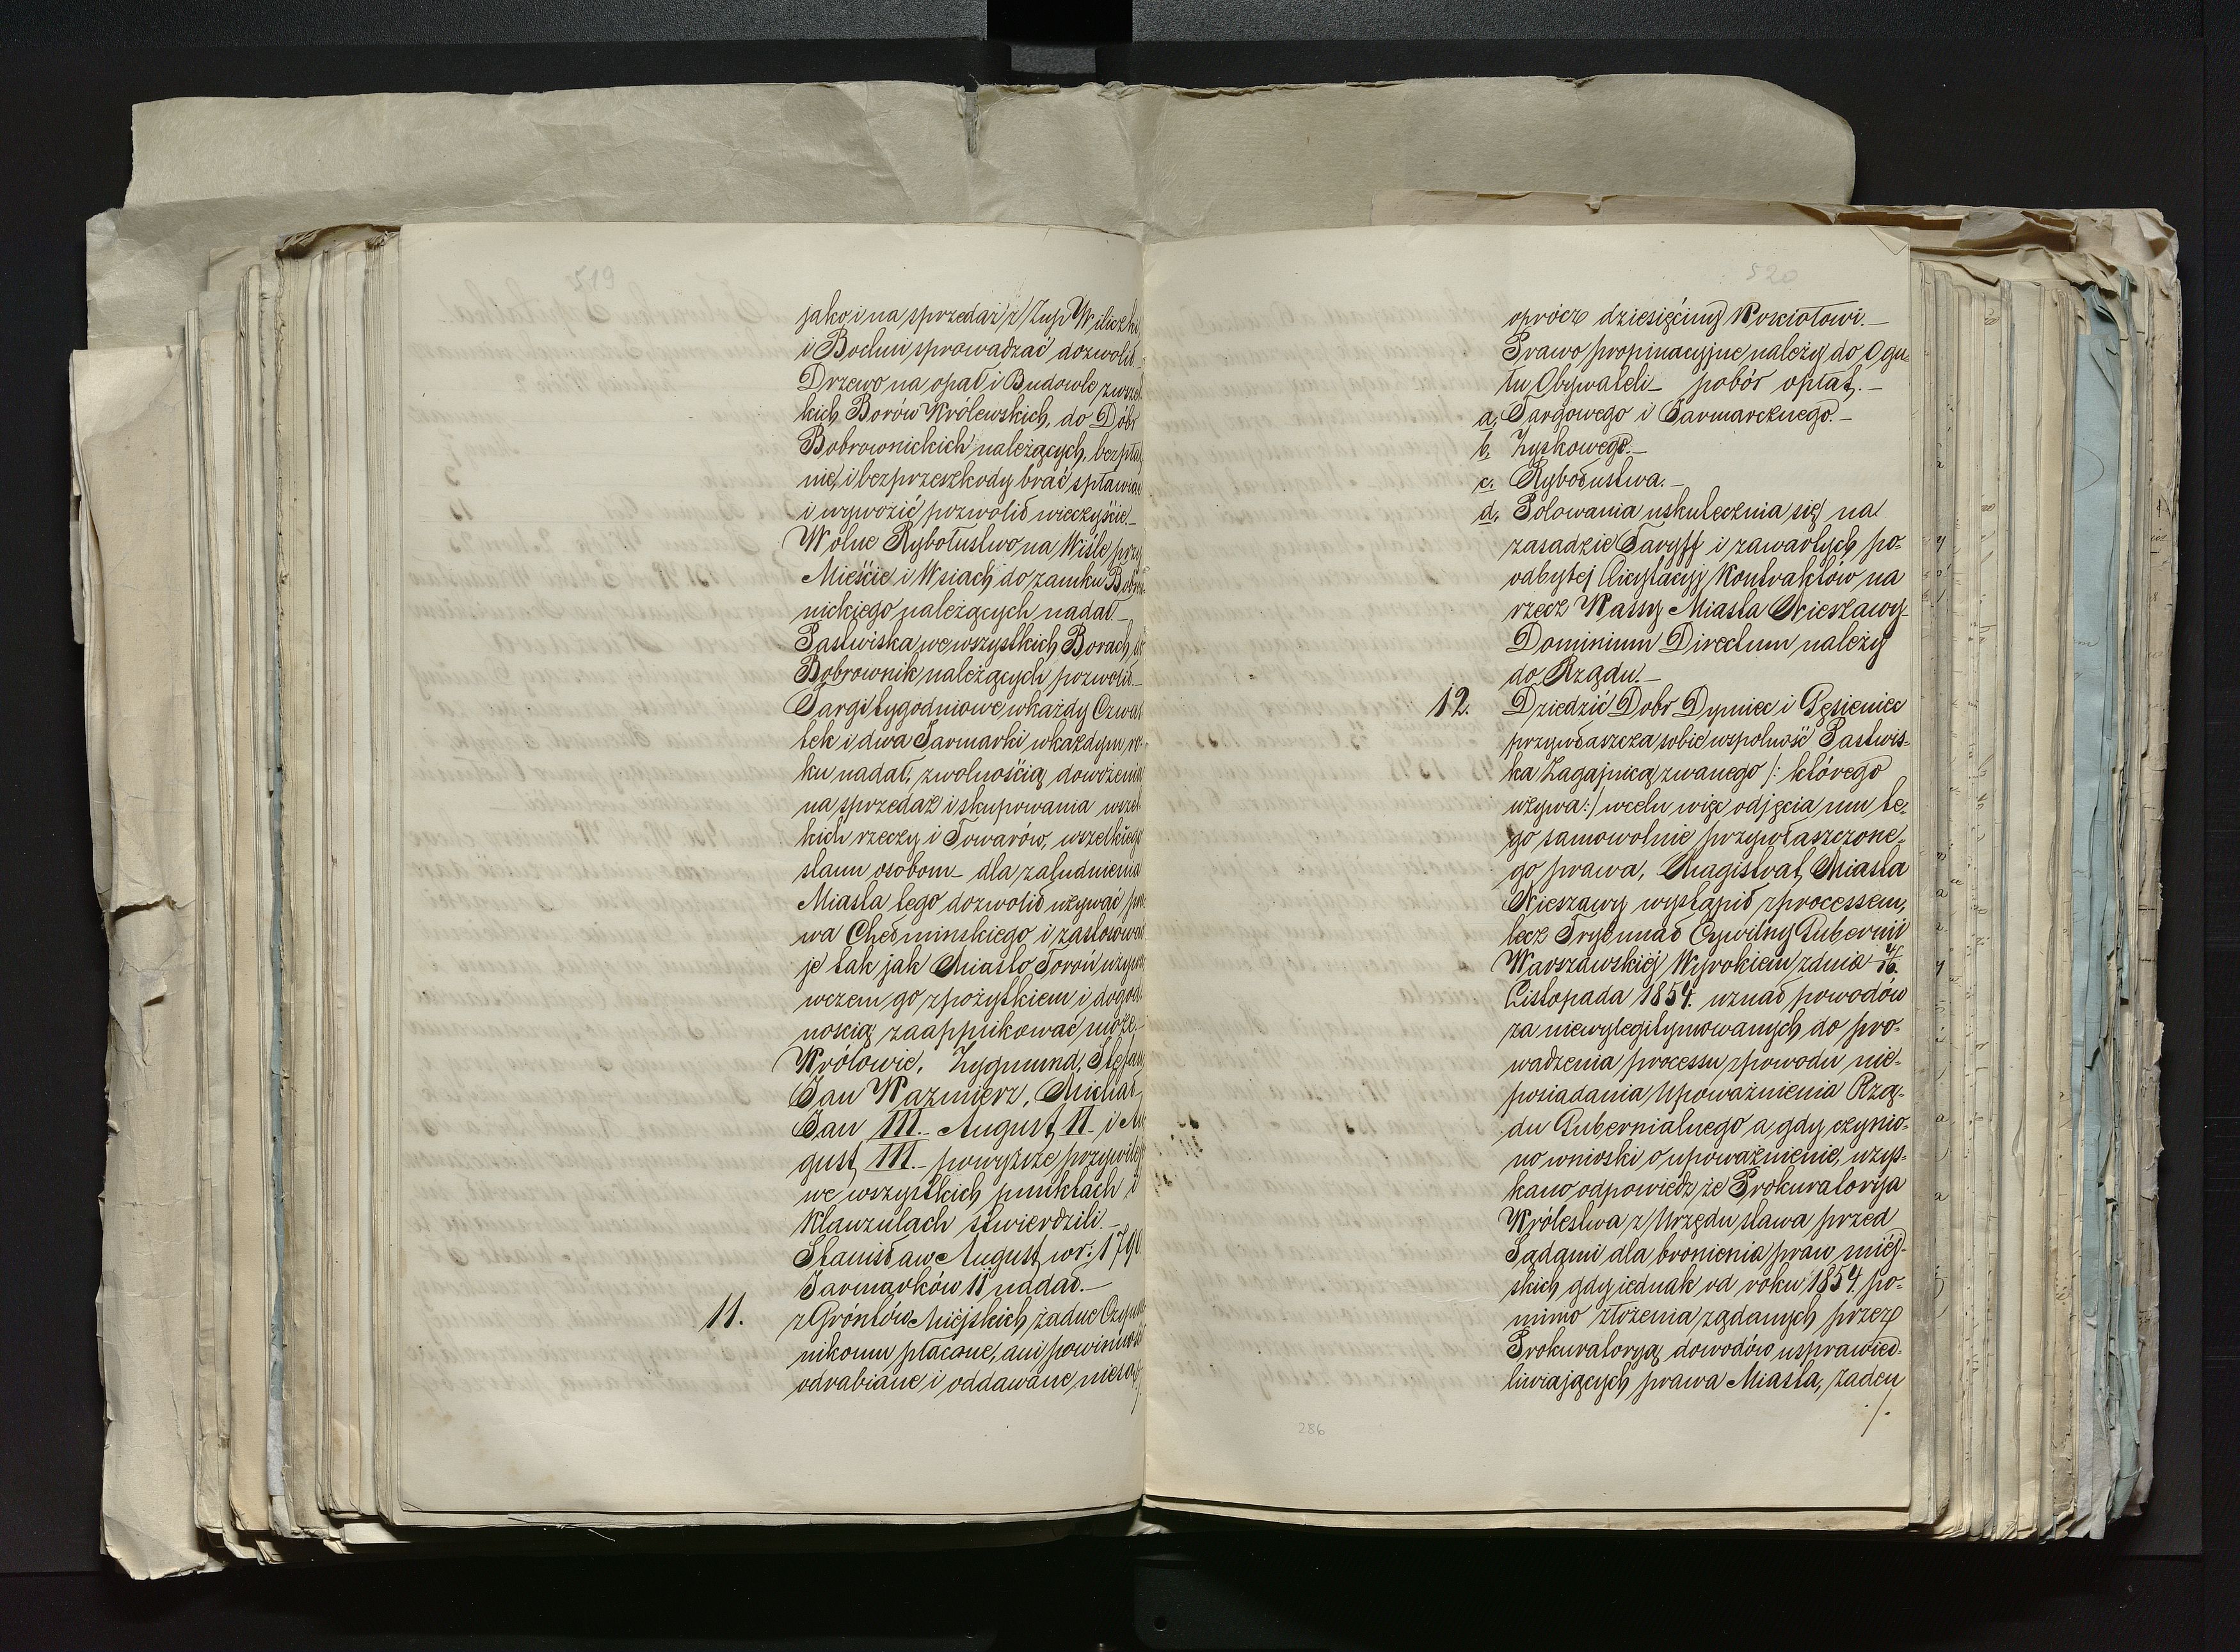 519
jako i na sprzedaż z Żup Wiliczki
i Bochni sprowadzać dozwolił.
Drzewo na opał i Budowle z wszel
kich Borów Królewskich, do Dóbr
Bobrownickich należących, bezpłat
nie, i bez przeszkody brać spławiać
i wywozić pozwolił wieczyście
Wolne Rybołustwo na Wiśle przy
Mieście i Wsiach do zamku Bobro
nickiego należących nadał.
Pastwiska we wszystkich Borach, do
Bobrownik należących pozwolił.
Targi tygodniowe w każdy Czwar
tek i dwa Jarmarki w każdym ro
ku nadał, z wolnością dowożenia
na sprzedaż i skupowania wszel
kich rzeczy i Towarów, wszelkiego
stanu osobom dla zaludnienia
Miasta tego dozwolił używać pra
wa Chełminskiego i zastosować
je tak jak Miasto Toroń używa
w czem go z pożytkiem i dogod
nością zaapplikować może.
Królowie, Zygmund, Stefan
Jan Kazmierz, Michał
Jan III. August II i Au
gust III. powyższe przywileje
we wszystkich punktach i
Klauzulach stwierdzili.
Stanisław August w r: 1790
Jarmarków 11 nadał.
11. z Gróntów Miejskich żadne Czynsze
nikomu płacone, ani powinności
odrabiane i oddawane nie są
520
oprócz dziesięciny Kosciołowi.
Prawo propinacyjne należy do Ogu-
łu Obywateli pobór opłat.
a. Targowego i Jarmarcznego.
b. Zyskowego.
c. Rybołustwa.
d. Polowania uskutecznia się na
zasadzie Taryff i zawartych po-
odbytej Licytacyj Kontraktów na
rzecz Kassy Miasta Nieszawy
Dominium Directum należy
do Rządu.
12. Dziedzić Dobr Dymiec i Gęsieniec
przywłaszcza sobie wspolność Pastwis-
ka Zagajnicą zwanego /: którego
używa :/ w celu więc odjęcia mu te-
go samowolnie przywłaszczone-
go prawa, Magistrat Miasta
Nieszawy wystąpił z processem,
lecz Trybunał Cywilny Gubernii
Warszawskiej Wyrokiem z dnia 4/16.
Listopada 1854. uznał powodów
za niewylegitymowanych do pro-
wadzenia processu z powodu nie-
posiadania Upoważnienia Rzą-
du Gubernialnego a gdy czynio-
no wnioski o upoważnienie, uzys-
kano odpowiedź że Prokuratorija
Królestwa z Urzędu stawa przed
Sądami dla bronienia praw miej-
skich gdy iednak od roku 1854. po-
mimo złożenia żądanych przez
Prokuratoryą dowodów usprawied-
liwiających prawa Miasta, żaden
./.
286